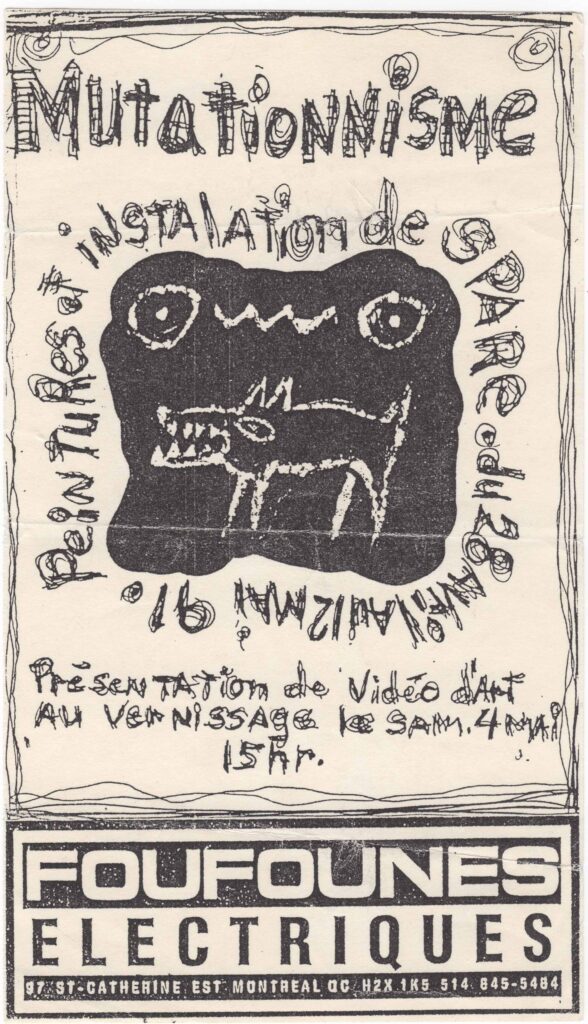 Mutationnisme
Peintures et instalation de SPARE. du 28 avril au 12 mai 91.
Présentation de Vidéo d'Art
au vernissage le sam. 4 mai
15hr.
FOUFOUNES
ELECTRIQUES
97 ST-CATHERINE EST MONTREAL QC H2X 1K5 514 845-5484